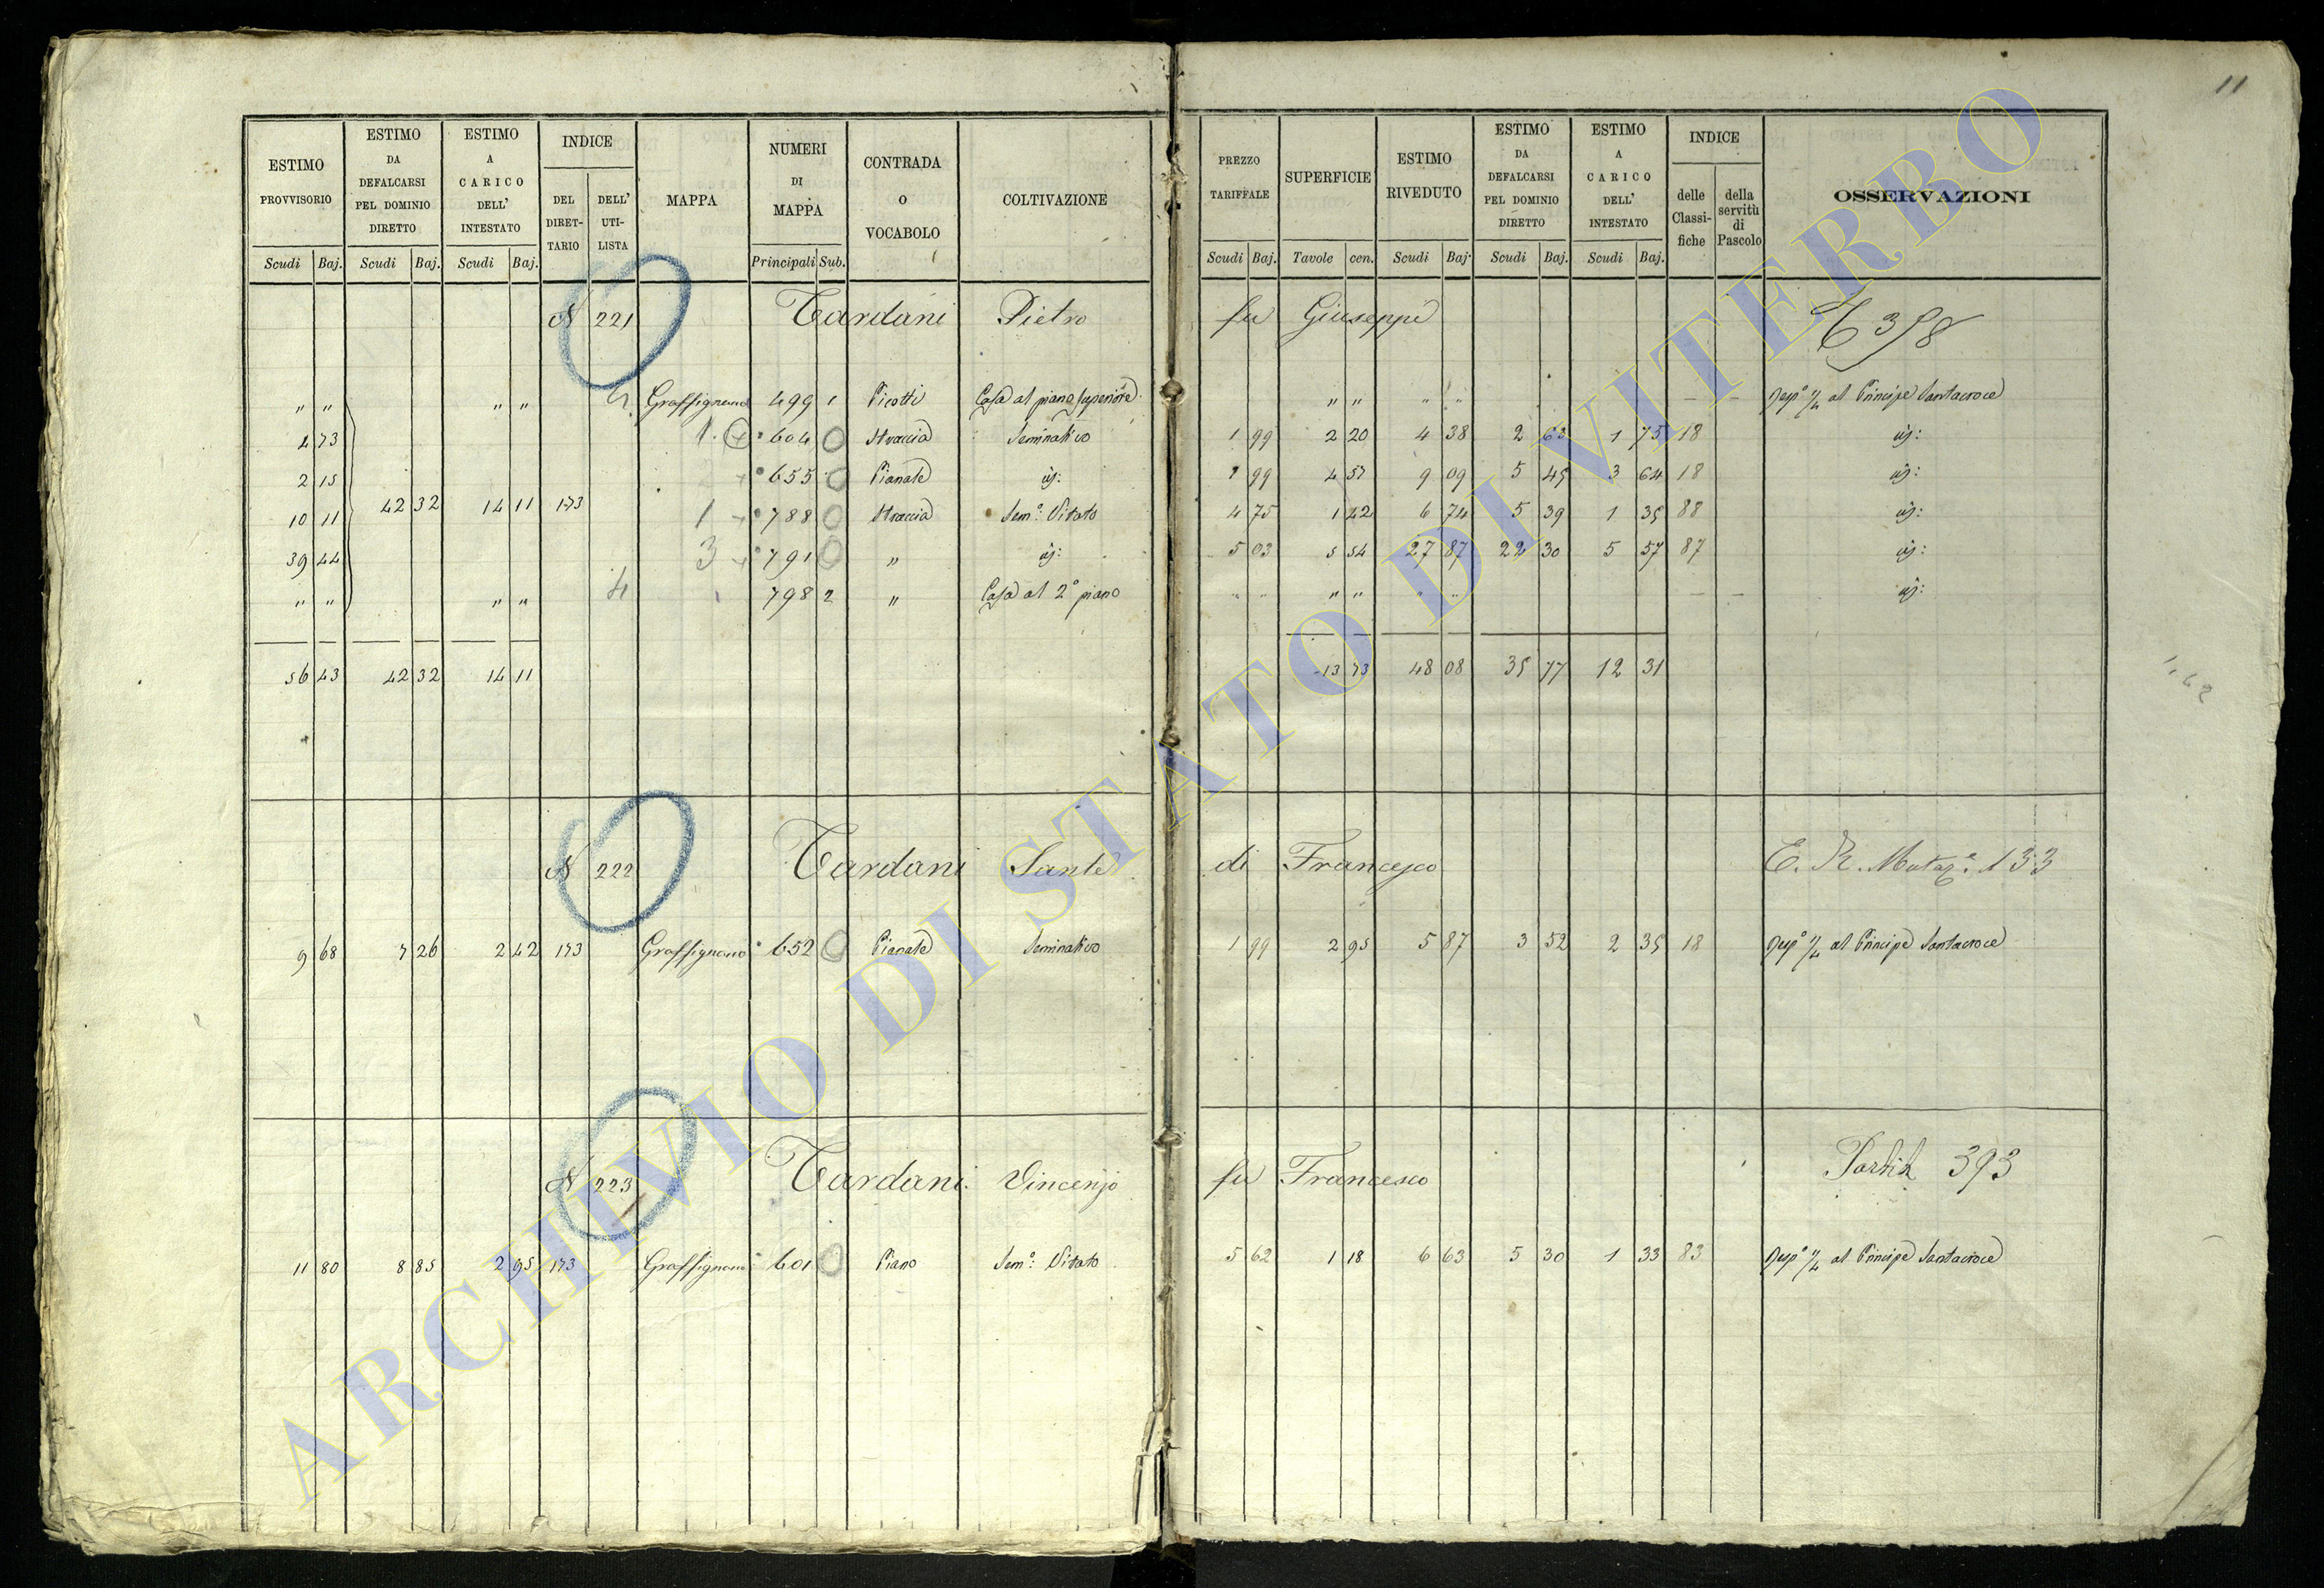 11
ESTIMO PROVVISORIO Scudi Baj.
ESTIMO DA DEFALCARSI PEL DOMINIO DIRETTO Scudi Baj.
ESTIMO A CARICO DELL' INTESTATO Scudi Baj.
INDICE DEL DIRET-TARIO DELL' UTI-LISTA
MAPPA
NUMERI DI MAPPA Principali Sub.
CONTRADA O VOCABOLO
COLTIVAZIONE
PREZZO TARIFFALE Scudi Baj.
SUPERFICIE Tavole cen.
ESTIMO RIVEDUTO Scudi Baj.
ESTIMO DA DEFALCARSI PEL DOMINIO DIRETTO Scudi Baj.
ESTIMO A CARICO DELL' INTESTATO Scudi Baj.
INDICE delle Classi-fiche della servitù di Pascolo
OSSERVAZIONI
N 221 Tardani Pietro fu Giuseppe
" " " " Graffignano 499 1 Picotti Casa al piano superiore " " " " — — Resp.e ¼ al Principe Santacroce
4 73 1 604 Straccia Seminativo 1 99 2 20 4 38 2 63 1 75 18 id:
2 15 655 Pianate id: 1 99 4 57 9 09 5 45 3 64 18 id:
10 11 42 32 14 11 173 1 788 Straccia Sem.o Vitato 4 75 1 42 6 74 5 39 1 35 88 id:
39 44 3 791 " id: 5 03 5 54 27 87 22 30 5 57 87 id:
" " " " 4 798 2 " Casa al 2° piano " " " " " " — — id:
56 43 42 32 14 11 13 73 48 08 35 77 12 31
N 222 Tardani Sante di Francesco E. R. Mutaz.e 133
9 68 7 26 2 42 173 Graffignano 652 Pianate Seminativo 1 99 2 95 5 87 3 52 2 35 18 Resp.e ¼ al Principe Santacroce
N 223 Tardani Vincenzo fu Francesco Partita 393
11 80 8 85 2 95 173 Graffignano 601 Piano Sem.o Vitato 5 62 1 18 6 63 5 30 1 33 83 Resp.e ¼ al Principe Santacroce
ARCHIVIO DI STATO DI VITERBO